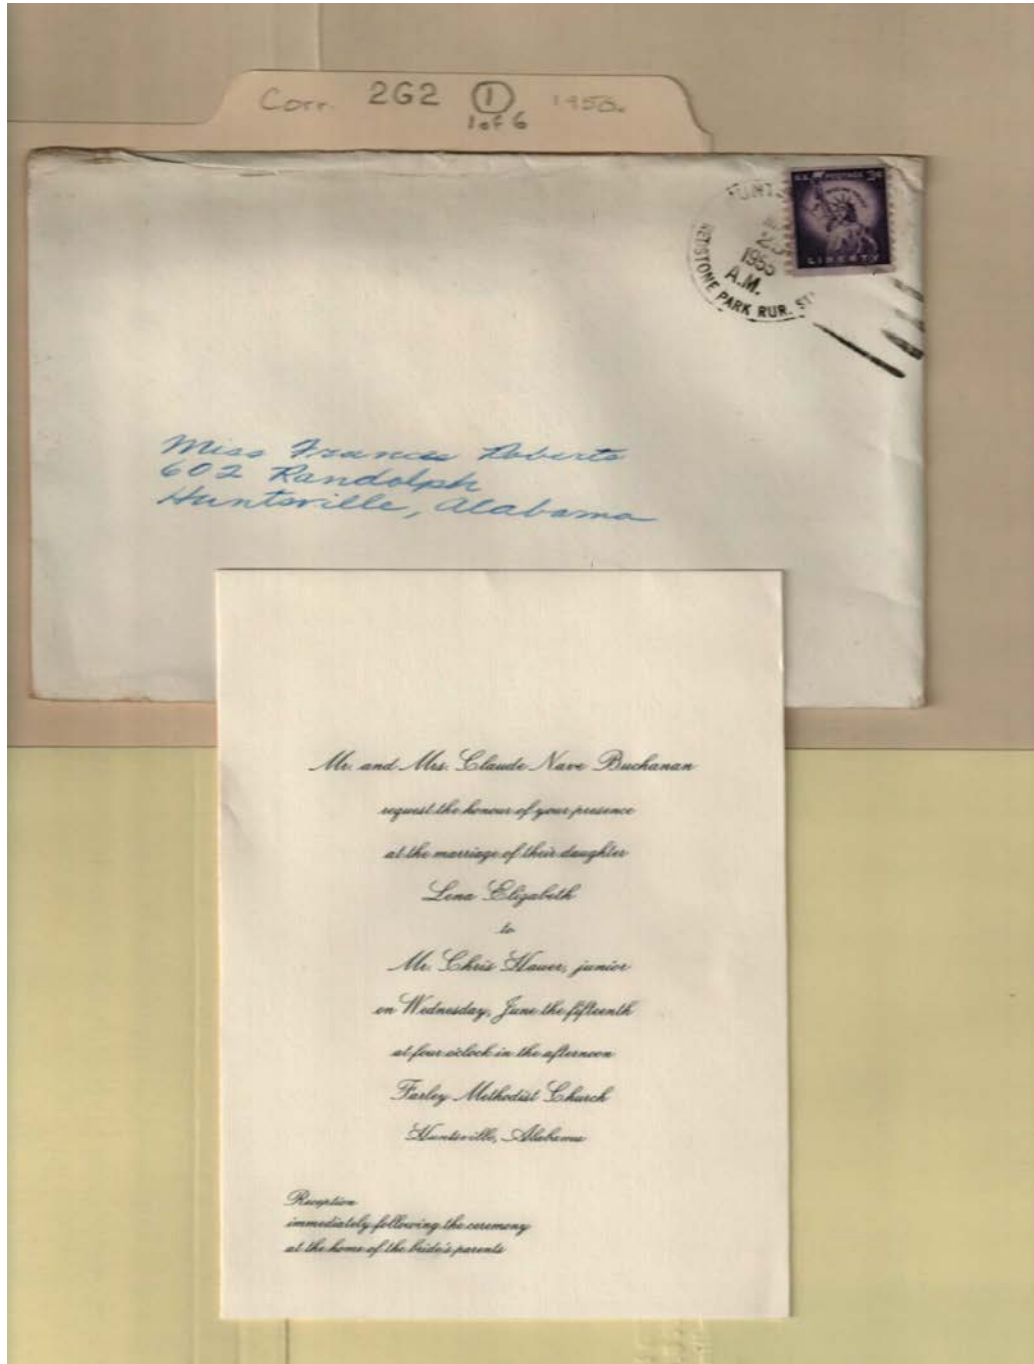 Corr. 2G2 1 195
1 of 6
U.S. POSTAGE 3¢
LIBERTY
HUNT
1955
A.M.
REDSTONE PARK RUR. ST
Miss Frances Roberts
602 Randolph
Huntsville, Alabama
Mr. and Mrs. Claude Nave Buchanan
request the honour of your presence
at the marriage of their daughter
Lena Elizabeth
to
Mr. Chris Hauer, junior
on Wednesday, June the fifteenth
at four o'clock in the afternoon
Farley Methodist Church
Huntsville, Alabama
Reception
immediately following the ceremony
at the home of the bride's parents